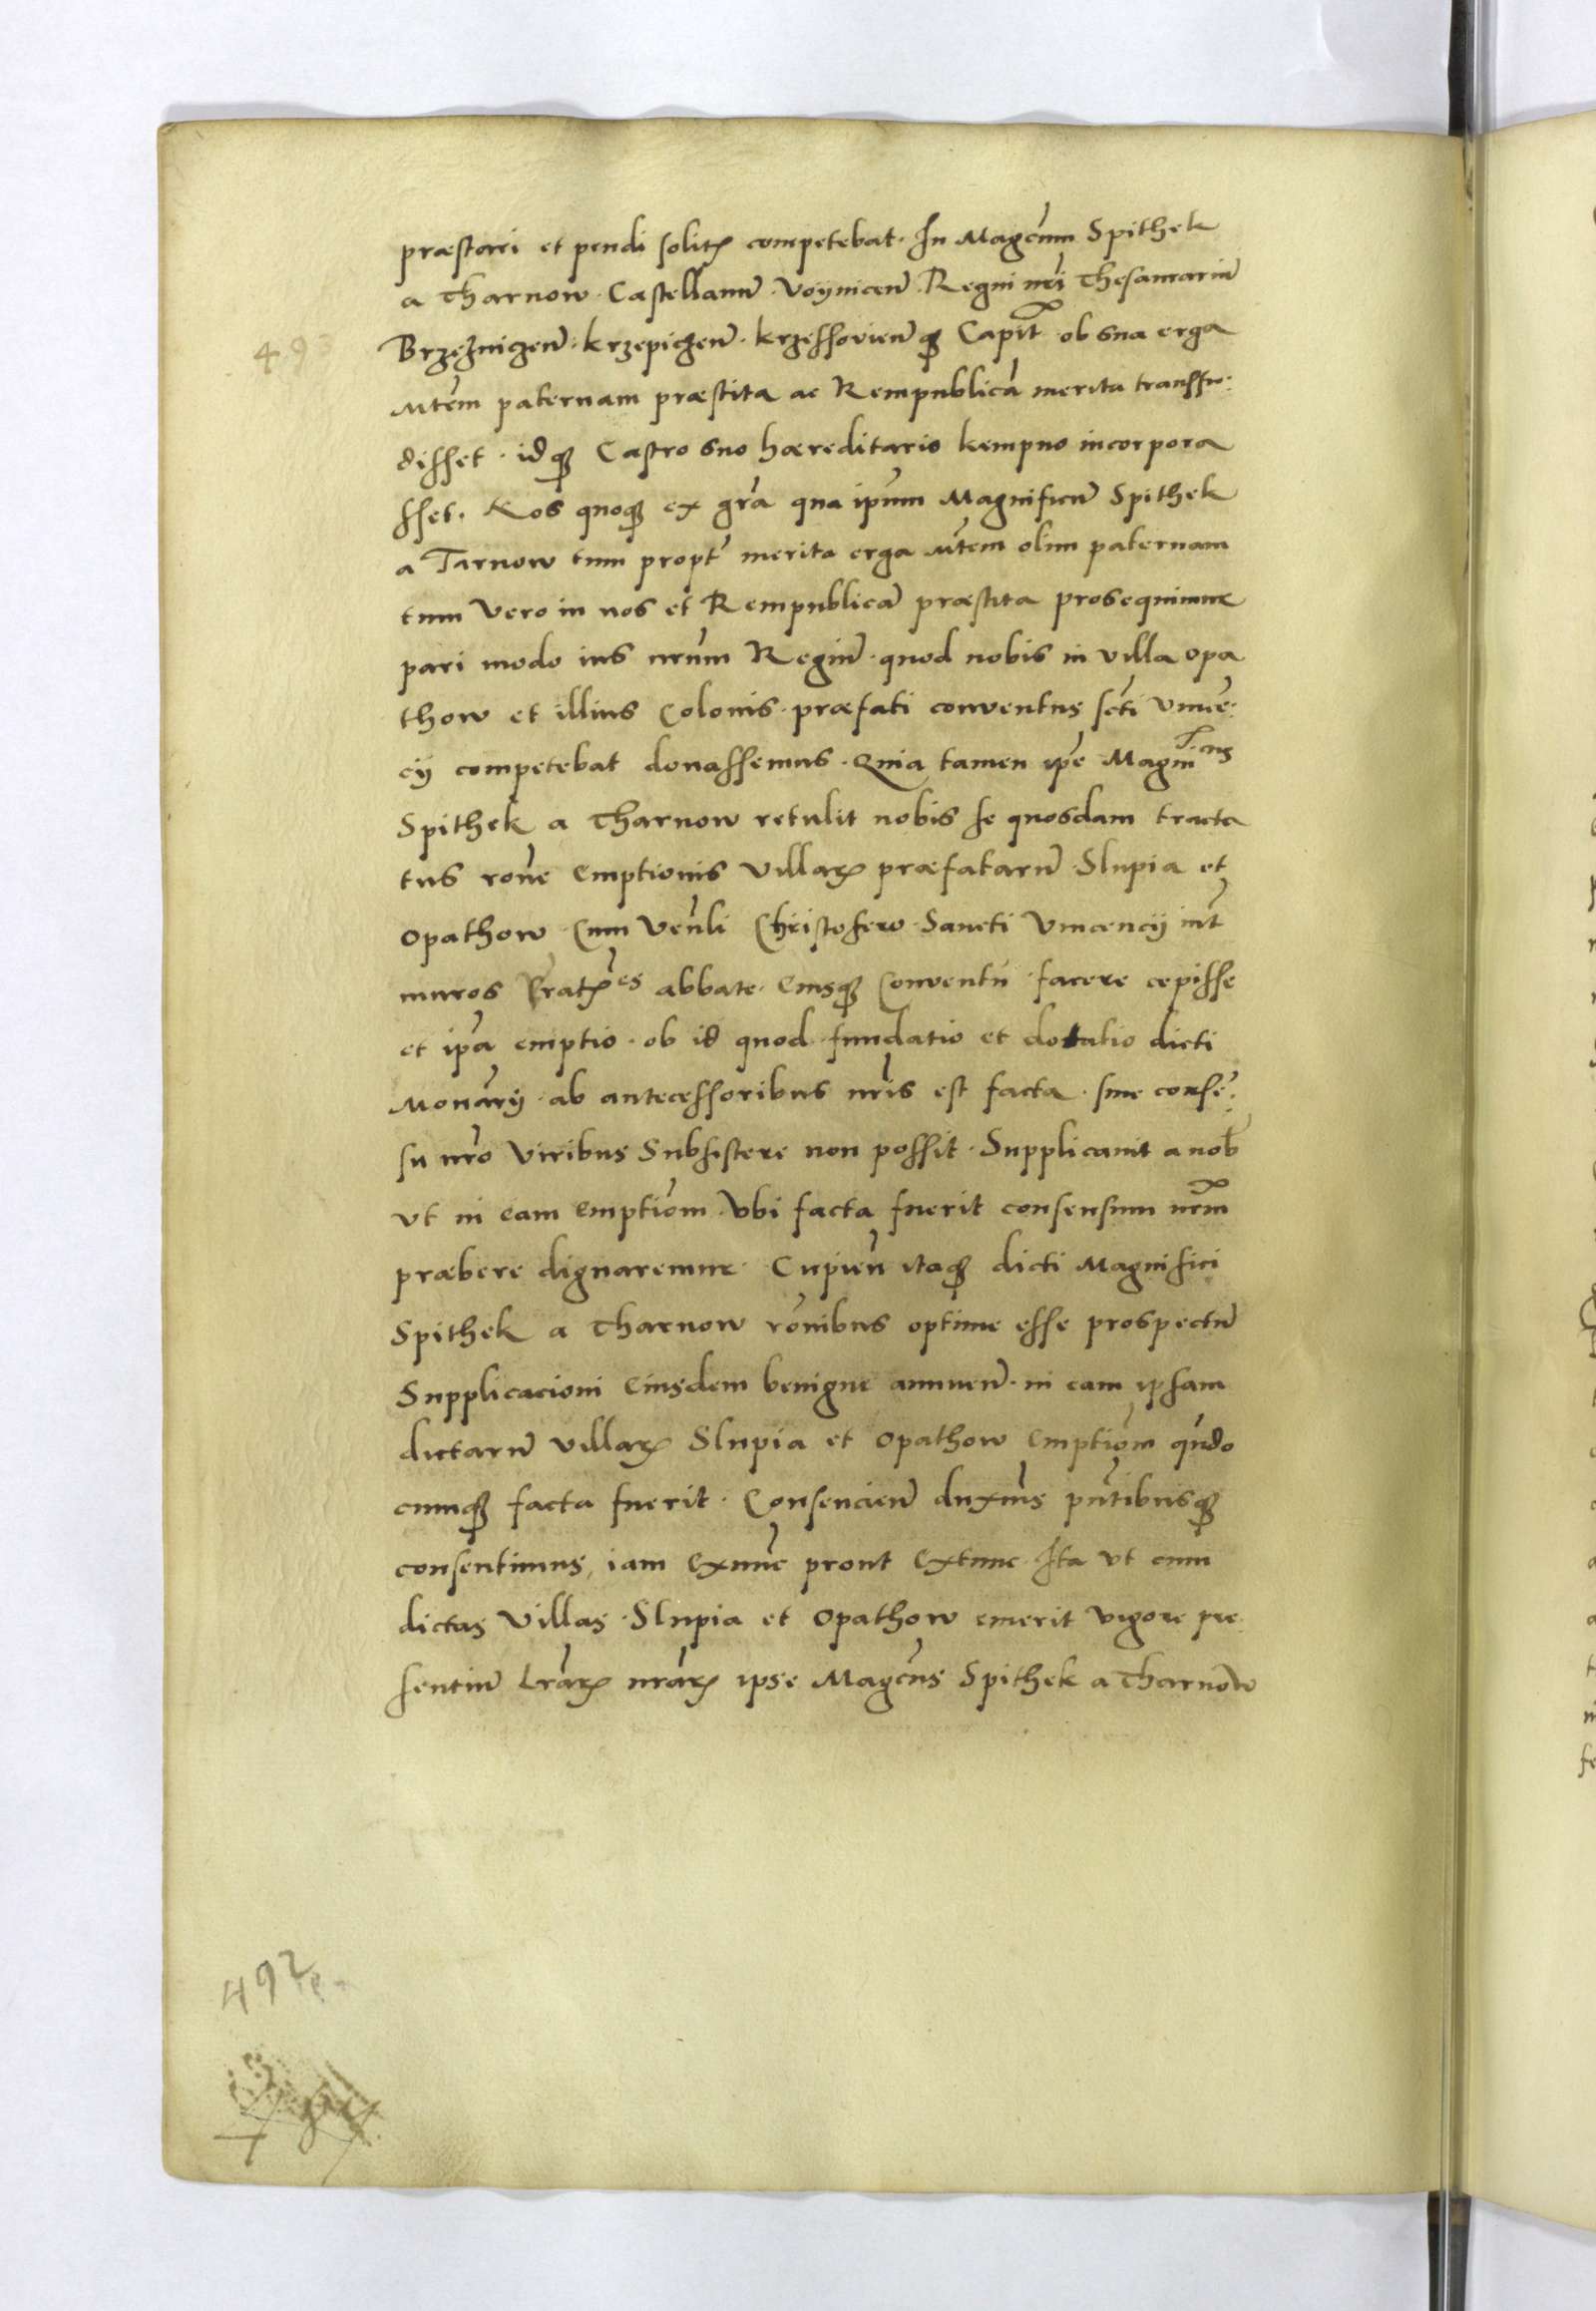 præstari et pendi solitꝝ competebat. In Magcũm Spithek
a Tharnow. Castellanũ. Voynicen̄. Regni nr̃i Thesaurariũ
Brzeznicen̄. krzepicen̄. krzessovien̄qꝫ Capit̃. ob sua erga
Mtẽm paternam præstita ac Rempublicã merita transfu:
disset. idqꝫ Castro suo hæreditario kempno incorpora
sset. Nos quoqꝫ ex gr̃a qua ip̃um Magnificũ Spithek
a Tarnow tum propt̃ merita erga Mtẽm olim paternam
tum vero in nos et Rempublicã præstita prosequimur
pari modo ius nr̃um Regiũ. quod nobis in villa opa
thow et illius Colonis. præfati conventus sc̃ti Vince:
cij competebat donassemus. Quia tamen ip̃e Magnificus
Spithek a Tharnow retulit nobis se quosdam tracta
tus rõne Emptionis Villaꝝ præfatarũ. Slupia et
opathow. Cum Ven̄li Christofero. Sancti Vincencij int̃
muros Vratꝭes abbate. Eiusqꝫ Conventũ. facere cepisse
et ip̃a emptio. ob id quod fundatio et dotatio dicti
Monãrij. ab antecessoribus nr̃is est facta. sine consẽ:
su nr̃o viribus Subsistere non possit. Supplicavit a nob̃
vt in eam Emptiõm. Vbi facta fuerit consensum nr̃m
præbere dignaremur. Cupien̄ itaqꝫ dicti Magnifici
Spithek a Tharnow rõnibus optime esse prospectũ
Supplicacioni Eiusdem benigne annuen̄. in eam ipsam
dictarũ Villaꝝ Slupia et opathow Emptiõm qũdo
cunqꝫ facta fuerit. Consencien̄ duxim̃s pñtibusqꝫ
consentimus, iam Exnũc prout Extunc. Ita vt cum
dictas Villas. Slupia et opathow emerit vigore pre
sentiũ Lr̃aꝝ nr̃aꝝ ipse Magcũs Spithek a Tharnow
49
492